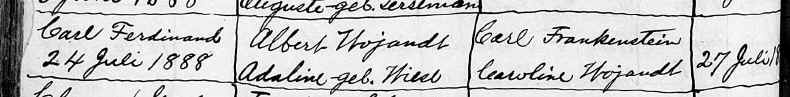 Auguste geb.
Carl Ferdinand
24 Juli 1888
Albert Wojandt
Adaline geb. Wiese
Carl Frankenstein
Caroline Wojandt
27 Juli 18